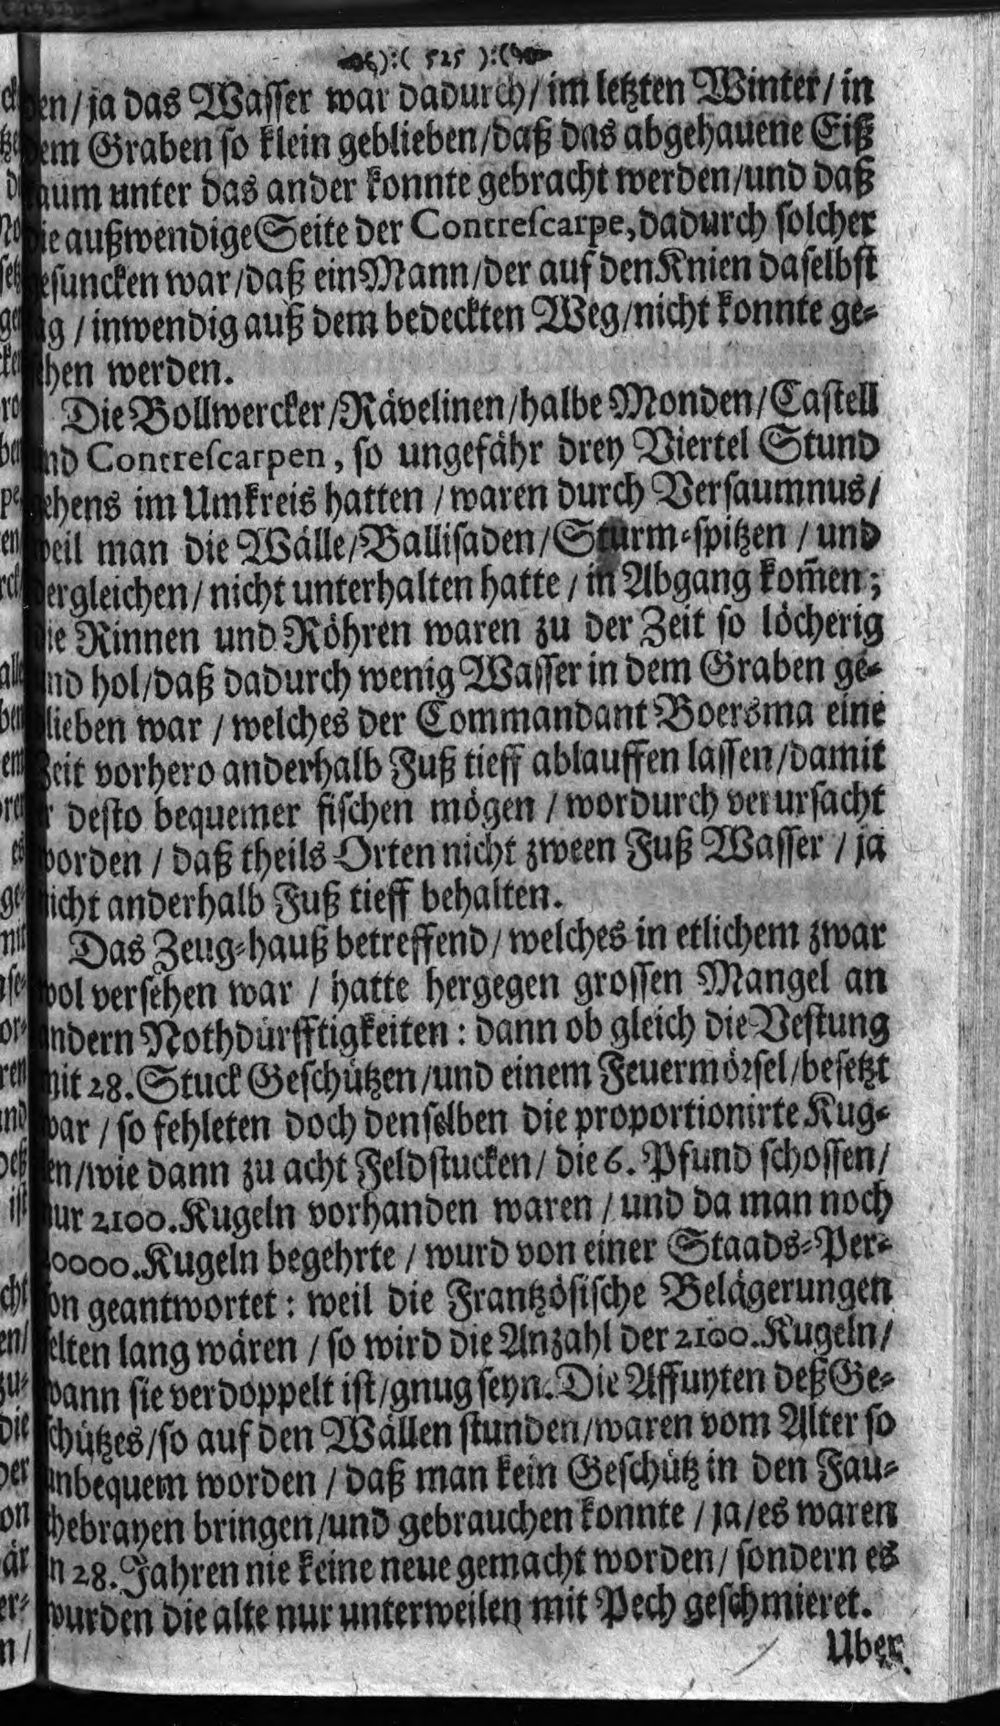 ):( 525 ):(
den/ja das Wasser war dadurch/im letzten Winter/in
dem Graben so klein geblieben/daß das abgehauene Eiß
kaum unter das ander konnte gebracht werden/und daß
die außwendige Seite der Contrescarpe, dadurch solcher
gesuncken war/daß ein Mann/der auf den Knien daselbst
lag/inwendig auß dem bedeckten Weg/nicht konnte ge-
sehen werden.
Die Bollwercker/Rävelinen/halbe Monden/Castell
und Contrescarpen, so ungefähr drey Viertel Stund
gehens im Umkreis hatten/waren durch Versaumnus/
weil man die Wälle/Ballisaden/Sturm-spitzen/und
dergleichen/nicht unterhalten hatte/in Abgang kom̄en;
die Rinnen und Röhren waren zu der Zeit so löcherig
und hol/daß dadurch wenig Wasser in dem Graben ge-
blieben war/welches der Commandant Boersma eine
Zeit vorhero anderhalb Fuß tieff ablauffen lassen/damit
er desto bequemer fischen mögen/wordurch verursacht
worden/daß theils Orten nicht zween Fuß Wasser/ja
nicht anderhalb Fuß tieff behalten.
Das Zeug-hauß betreffend/welches in etlichem zwar
wol versehen war/hatte hergegen grossen Mangel an
andern Nothdürfftigkeiten: dann ob gleich die Vestung
mit 28. Stuck Geschützen/und einem Feuermörsel/besetzt
war/so fehleten doch denselben die proportionirte Kug-
en/wie dann zu acht Feldstucken/die 6. Pfund schossen/
nur 2100. Kugeln vorhanden waren/und da man noch
0000. Kugeln begehrte/wurd von einer Staads-Per-
son geantwortet: weil die Frantzösische Belägerungen
selten lang wären/so wird die Anzahl der 2100. Kugeln/
wann sie verdoppelt ist/gnug seyn. Die Affuyten deß Ge-
schützes/so auf den Wällen stunden/waren vom Alter so
unbequem worden/daß man kein Geschütz in den Fau-
chebrayen bringen/und gebrauchen konnte/ja/es waren
in 28. Jahren nie keine neue gemacht worden/sondern es
wurden die alte nur unterweilen mit Pech geschmieret.
Uber